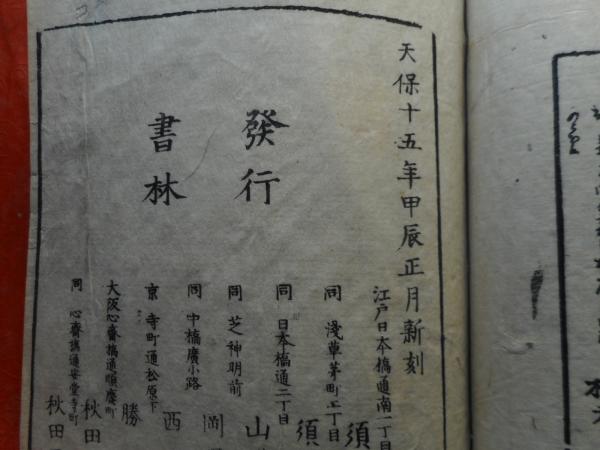 天保十五年甲辰正月新刻
發行
書林
江戸日本橋通南一丁目 須
同 淺草茅町二丁目 須
同 日本橋通二丁目 山
同 芝神明前 岡
同 中橋廣小路 西
京 寺町通松原下 勝
大阪心齋橋通順慶町 秋田
同 心齋橋通安堂寺町 秋田